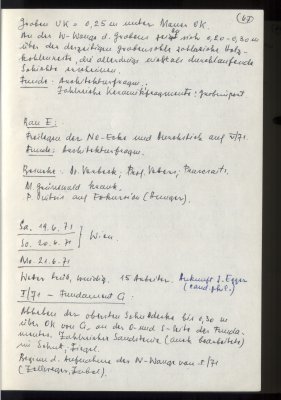 (67)
Graben UK = 0,25 m unter Mauer OK.
An der W-Wange d. Grabens zeigt sich 0,20-0,30 m
über der derzeitigen Grabensohle zahlreiche Holz-
kohlenreste, die allerdings nicht als durchlaufende
Schichte erscheinen.
Funde: Architekturfragm.
Zahlreiche Keramikfragmente
Rau E:
Freilegen der NO-Ecke und Durchstich auf I/71.
Funde: Architekturfragm.
Besuche: Dr. Vorbeck; Prof. Vetters;
M. Grünewald krank.
P. auf Exkursion
Sa. 19.6.71
So. 20.6.71
Wien.
Mo 21.6.71
Wetter trüb, windig. 15 Arbeiter. Ankunft J. Egger
(cand. phil.)
I/71 – Fundament G:
Abheben der obersten Schuttdecke bis 0,30 m
über OK von G, an der O- und S-Seite des Funda-
mentes. Zahlreiche Sandsteine (auch bearbeitete)
im Schutt, Ziegel.
Beginn d. Aufnahme der W-Wange von I/71